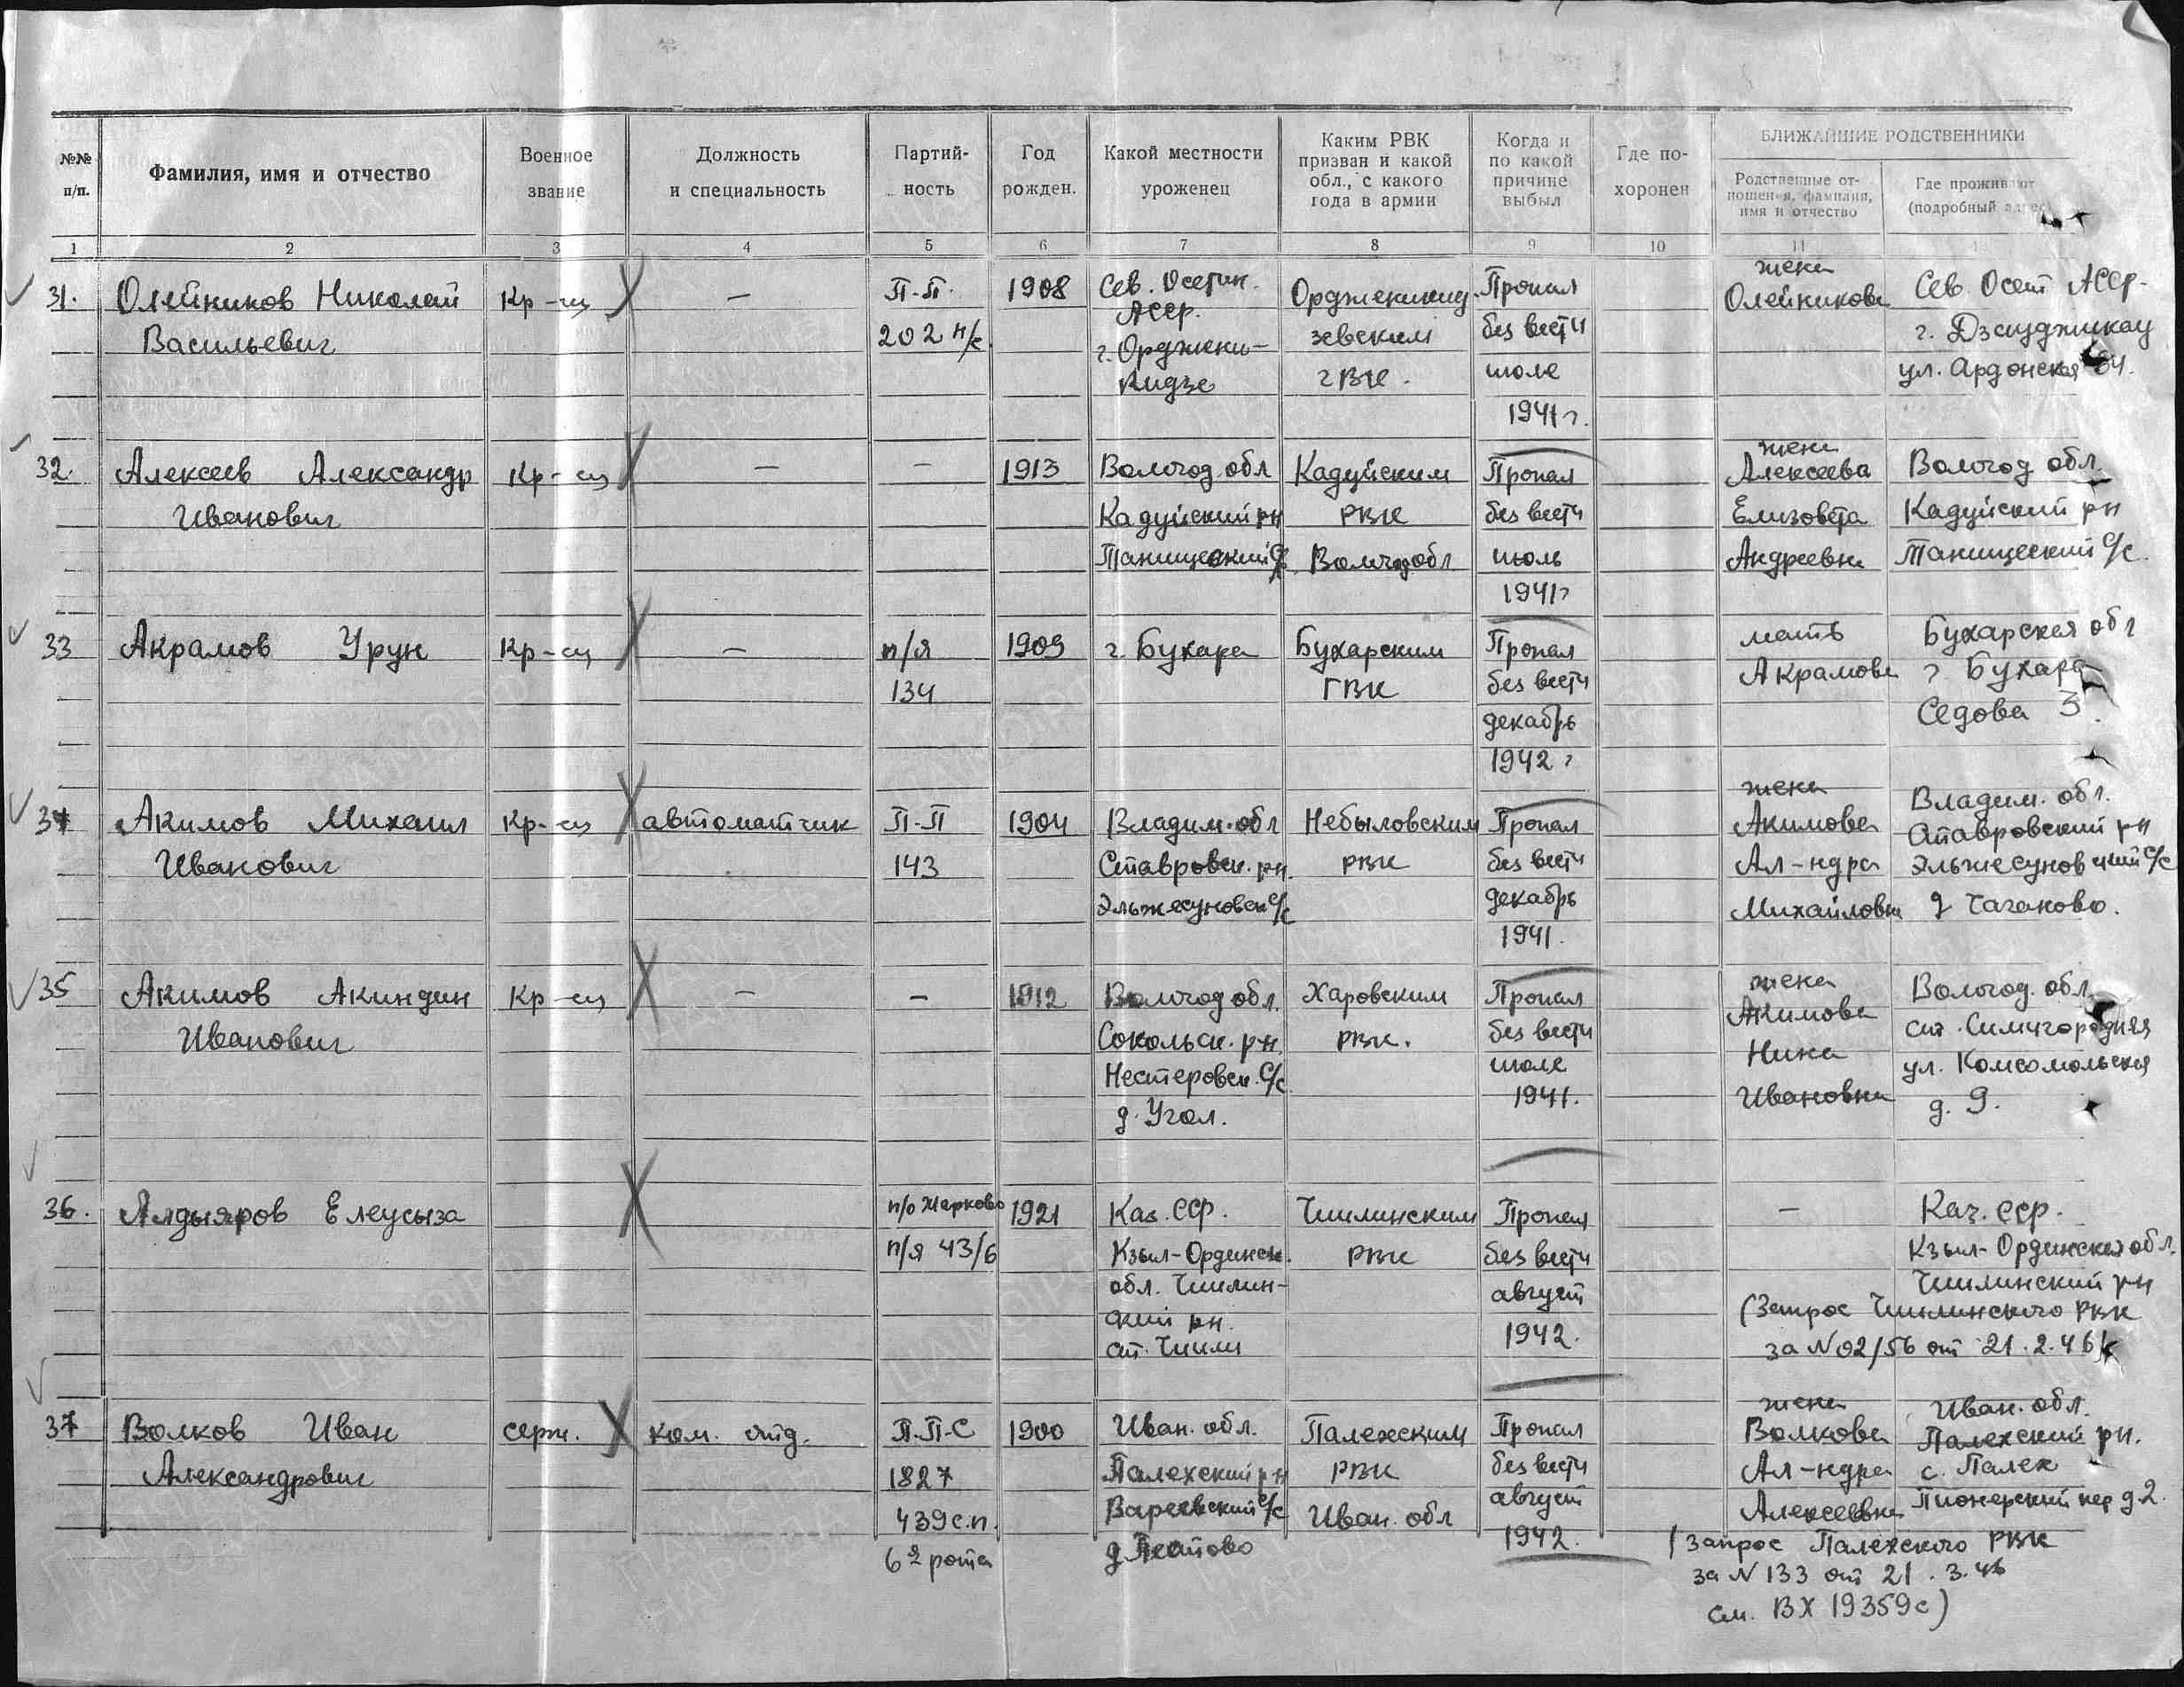 №№ п/п.
Фамилия, имя и отчество
Военное звание
Должность и специальность
Партий-
ность
Год рожден.
Какой местности уроженец
Каким РВК
призван и какой
обл., с какого
года в армии
Когда и
по какой
причине
выбыл
Где по-
хоронен
БЛИЖАЙШИЕ РОДСТВЕННИКИ
Родственные от-
ношен-я, фамилия,
имя и отчество
Где проживают
(подробный адрес)
1 2 3 4 5 6 7 8 9 10 11
31.
Олейников Николай
Васильевич
Кр-ец
—
П.-П.
202 п/с
1908
Сев. Осетин.
АССР.
г. Орджени-
кидзе
Орджекикид-
зевским
ГВК.
Пропал
без вести
июле
1941 г.
жена
Олейникова
Сев. Осет АССР.
г. Дзауджикау
ул. Ардонская 64.
32.
Алексеев Александр
Иванович
Кр-ец
—
—
1913
Вологод. обл
Кадуйский рн
Танищеский с/с
Кадуйским
РВК
Вологод обл
Пропал
без вести
июль
1941 г
жена
Алексеева
Елизовета
Андреевна
Вологод обл.
Кадуйский рн
Танищеский с/с.
33
Акрамов Урун
Кр-ец
—
п/я
134
1909
г. Бухара
Бухарским
ГВК
Пропал
без вести
декабрь
1942 г
мать
Акрамова
Бухарская обл
г. Бухара
Седова 3.
34
Акимов Михаил
Иванович
Кр-ец
автоматчик
П.-П
143
1904
Владим. обл
Ставровск. рн.
Эльжесуновск с/с
Небыловским
РВК
Пропал
без вести
декабрь
1941.
жена
Акимова
Ал-ндра
Михайловна
Владим. обл.
Ставровский рн
Эльжесуновский с/с
д Чаганово.
35
Акимов Акиндин
Иванович
Кр-ец
—
—
1912
Вологод обл.
Сокольск. рн.
Нестеровск. с/с
д. Угол.
Харовским
РВК.
Пропал
без вести
июле
1941.
жена
Акимова
Нина
Ивановна
Вологод. обл.
ст. Семигородняя
ул. Комсомольская
д. 9.
36.
Алдыяров Елеусыза
п/о Жарково
п/я 43/6
1921
Каз. ССР.
Кзыл-Ординск.
обл. Чиилин-
ский рн.
ст. Чиили
Чиилинским
РВК
Пропал
без вести
август
1942.
—
Каз. ССР.
Кзыл-Ординская обл.
Чиилинский рн
(Запрос Чиилинского РВК
за № 02/56 от 21.2.46)
37
Волков Иван
Александрович
серж.
ком. отд.
П.П-С
1827
439 с.п.
6я рота
1900
Иван. обл.
Палехский рн
Вареевский с/с
д
Палехским
РВК
Иван. обл
Пропал
без вести
август
1942.
жена
Волкова
Ал-ндра
Алексеевна
Иван. обл.
Палехский рн.
с. Палех
Пионерский пер д. 2.
(Запрос Палехского РВК
за № 133 от 21.3.46
см. ВХ 19359с)